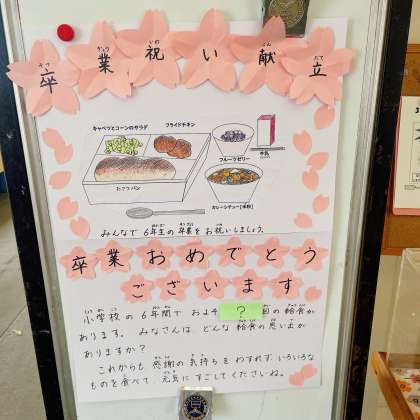 卒業祝い献立
キャベツとコーンのサラダ
フライドチキン
フルーツゼリー
牛乳
おさつパン
カレーシチュー[米粉]
みんなで 6年生の 卒業を お祝いしましょう。
卒業おめでとう
ございます
小学校の 6年間で およそ ? 回の 給食が
あります。 みなさんは どんな 給食の 思い出が
ありますか?
これからも 感謝の 気持ちを わすれず いろいろな
ものを食べて 元気に すごしてくださいね。